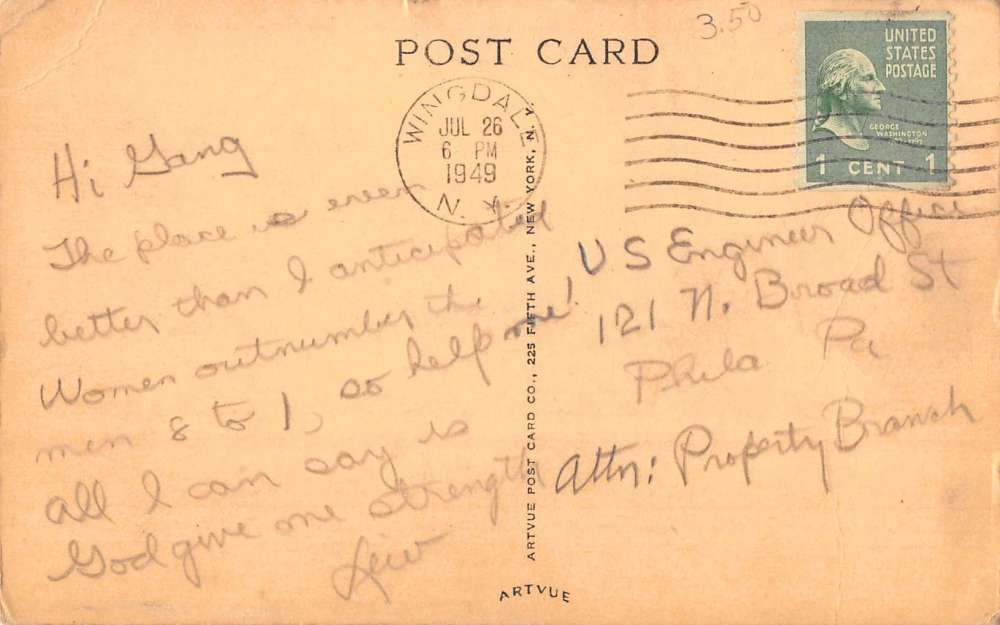 3.50
POST CARD
UNITED
STATES
POSTAGE
GEORGE
WASHINGTON
1 CENT 1
WINGDALE
JUL 26
6 PM
1949
N. Y.
Hi Gang
The place is even
better than I anticipated
Women outnumber the
men 8 to 1, so help me!
all I can say is
God give me strength
Lew
US Engineer Office
121 N. Broad St
Phila Pa
Attn: Property Branch
ARTVUE POST CARD CO., 225 FIFTH AVE., NEW YORK, N. Y.
ARTVUE